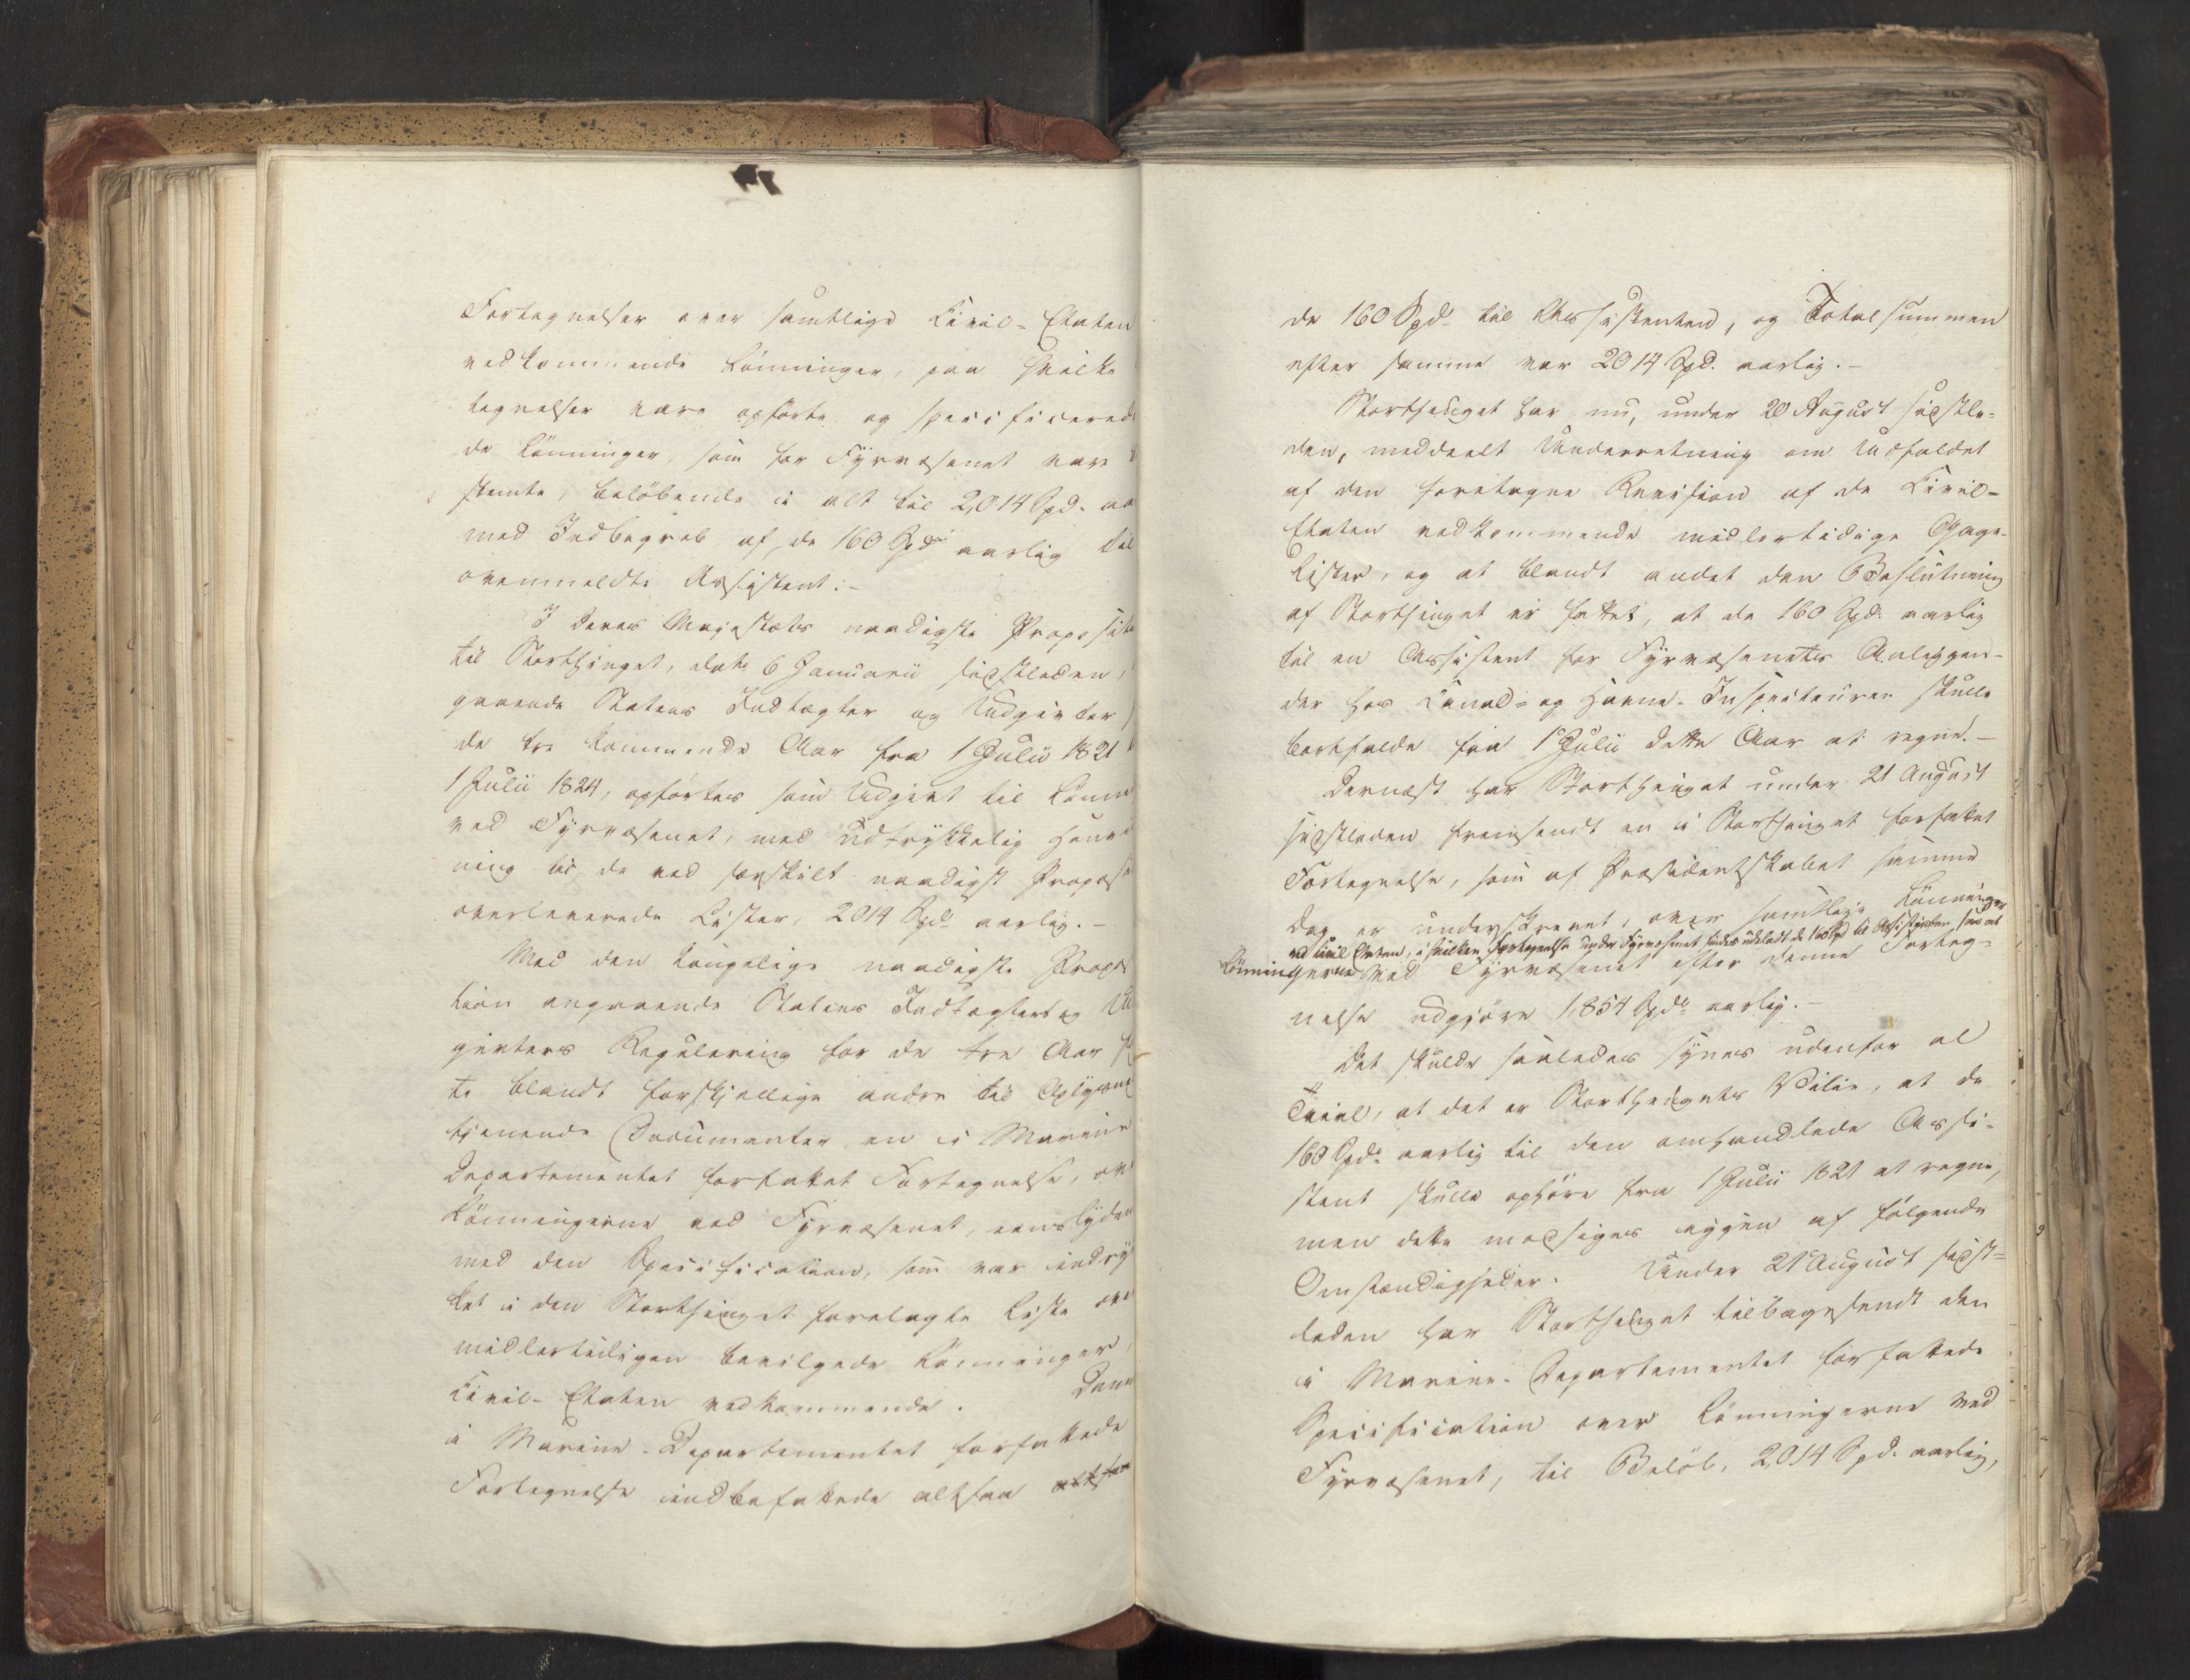 Fortegnelser over samtlige Civil-Etaten
vedkommende Lönninger, paa hvilke
tegnelser vare opförte og specificerede
de Lönninger, som for Fyrvæsenet vare
stemte, belöbende i alt til 2,014 Spd. aa
med Indbegreb af de 160 Spd aarlig til
ovenmeldte Assistent.-
I Deres Majestæts naadigste Proposit
til Storthinget, dat. 6 Januarii sidstleden,
gaaende Statens Indtægter og Udgivter
de tre kommende Aar fra 1 Julii 1821
1 Julii 1824, opförtes som Udgivt til Lönn
ved Fyrvæsenet, med udtrykkelig Henvi
ning til, de ved særskilt naadigst Proposi
overleverede Lister, 2014 Spd aarlig.-
Med den Kongelige naadigste Propos
tion angaaende Statens Indtægter og Ud
givters Regulering for de tre Aar
te blandt forskjellige andre til Oplysni
tjenende Documenter, en i Marine
Departementet forfattet Fortegnelse, ov
Lönningerne ved Fyrvæsenet, eenslyden
med den Specification, som var indryk
ket i den Storthinget forelagte Liste over
midlertidigen bevilgede Lönninger,
Civil-Etaten vedkommende. Denn
i Marine-Departementet forfattede
Fortegnelse indbefattede altsaa altsaa
de 160 Spd til Assistenten, og Totalsummen
efter samme var 2014 Spd. aarlig.-
Storthinget har nu, under 20 August sidstle-
den, meddeelt Underretning om Udfaldet
af den foretagne Revision af de Civil-
Etaten vedkommende midlertidige Gage-
Lister, og at blandt andet den Beslutning
af Storthinget er fattet, at de 160 Spd. aarlig
til en Assistent for Fyrvæsenets Anliggen-
der hos Canal- og Havne-Inspecteuren skulle
bortfalde fra 1 Julii dette Aar at regne.-
Dernæst har Storthinget under 21 August
sidstleden fremsendt en i Storthinget forfattet
Fortegnelse, som af Præsidentskabet samme
Dag er underskrevet, over samtlige Lönninger
ved Civil Etaten, i hvilken Fortegnelse under Fyrvæsenet findes udeladt de 160 Spd til Assistenten, saa at
Lönningerne ved Fyrvæsenet efter denne Forteg-
nelse udgjöre 1,854 Spd aarlig.-
Det skulde saaledes synes udenfor al
Tvivl, at det er Storthingets Villie, at de
160 Spd. aarlig til den omhandlede Assi-
stent skulle ophöre fra 1 Julii 1821 at regne,
men dette modsiges igjen af fölgende
Omstændigheder. Under 21 August sidst-
leden har Storthinget tilbagesendt den
i Marine-Departementet forfattede
Specification over Lönningerne ved
Fyrvæsenet, til Belöb, 2,014 Spd. aarlig,